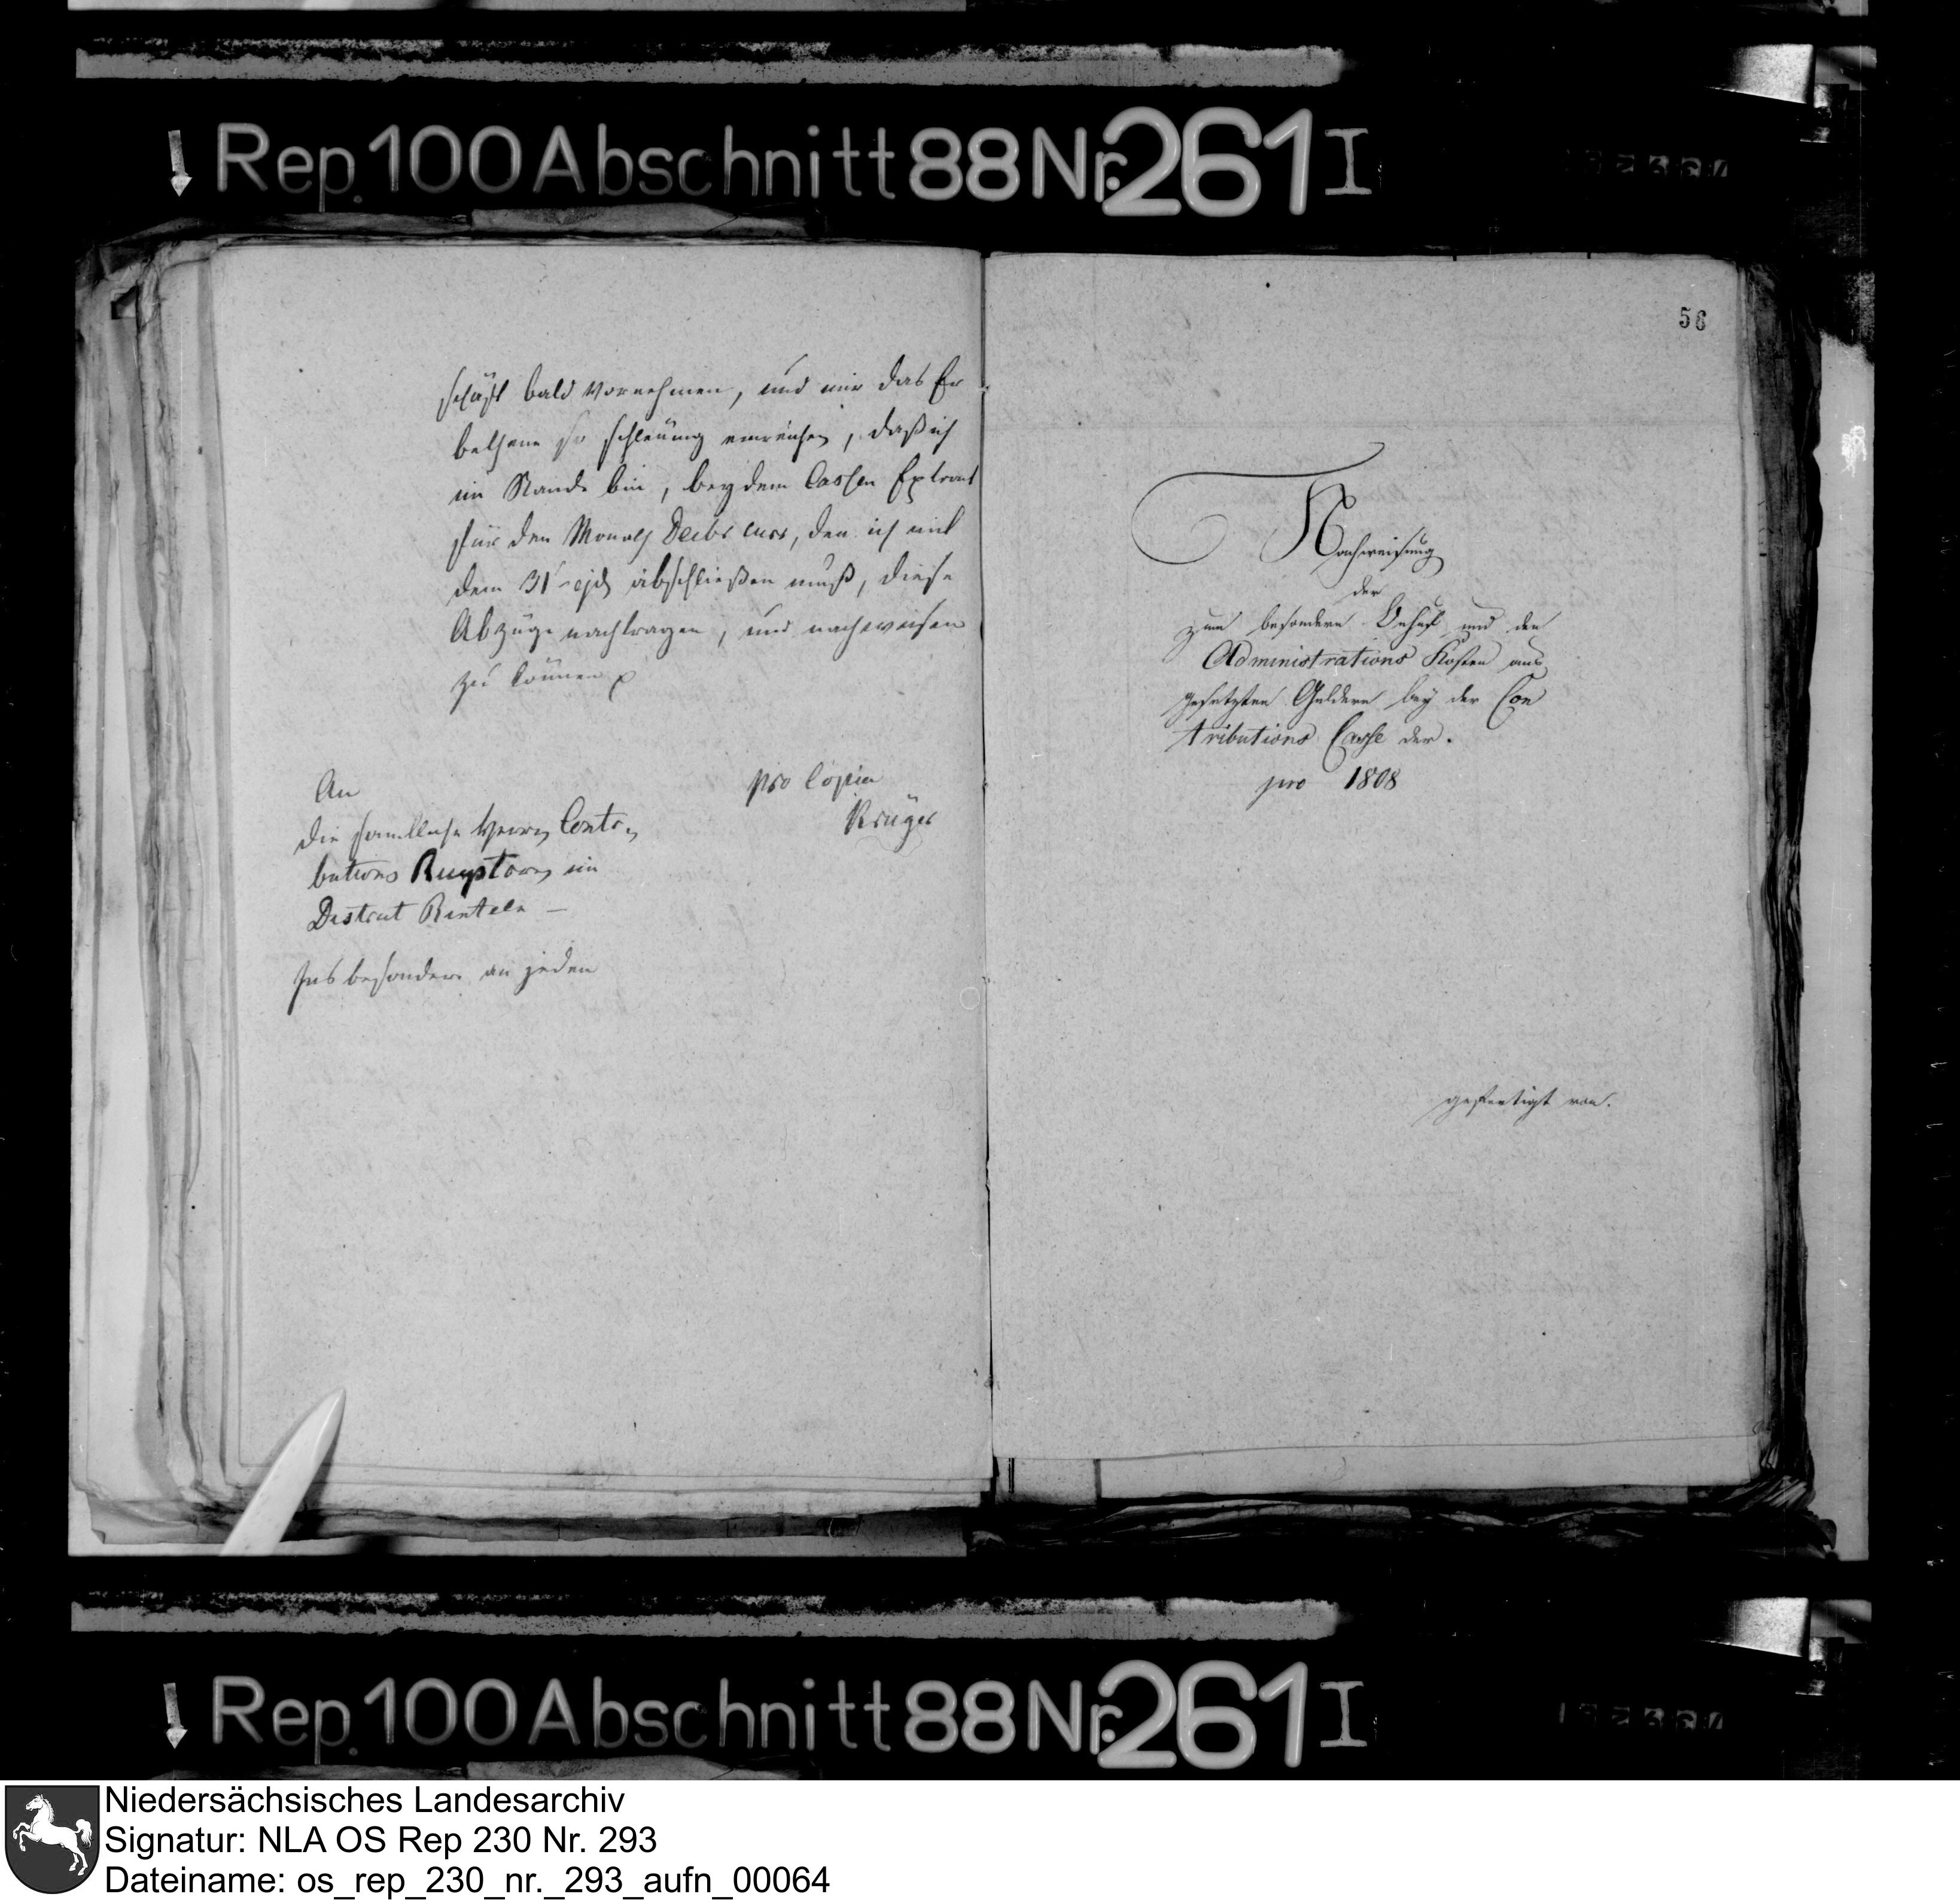 Rep. 100 Abschnitt 88 Nr. 261 I
schäft bald vornehmen, und mir das Er
bethene so schleunig einreichen, daß ich
im Stande bin, bey dem Cassen Extract
für den Monath Decbr curr, den ich mit
dem 31t ejd abschließen muß, diese
Abzüge nachtragen, und nachweisen
zu können
pro Copia
Krüger
An
die sämtliche Herrn Contri
butions Receptoren im
District Rinteln —
Insbesondere an jeden
56
Nachweisung
der
zum besondern Behuf und den
Administrations Kosten aus
gesetzten Geldern bey der Con
tributions Casse der.
pro 1808
gefertigt von.
Rep. 100 Abschnitt 88 Nr. 261 I
Niedersächsisches Landesarchiv
Signatur: NLA OS Rep 230 Nr. 293
Dateiname: os_rep_230_nr._293_aufn_00064